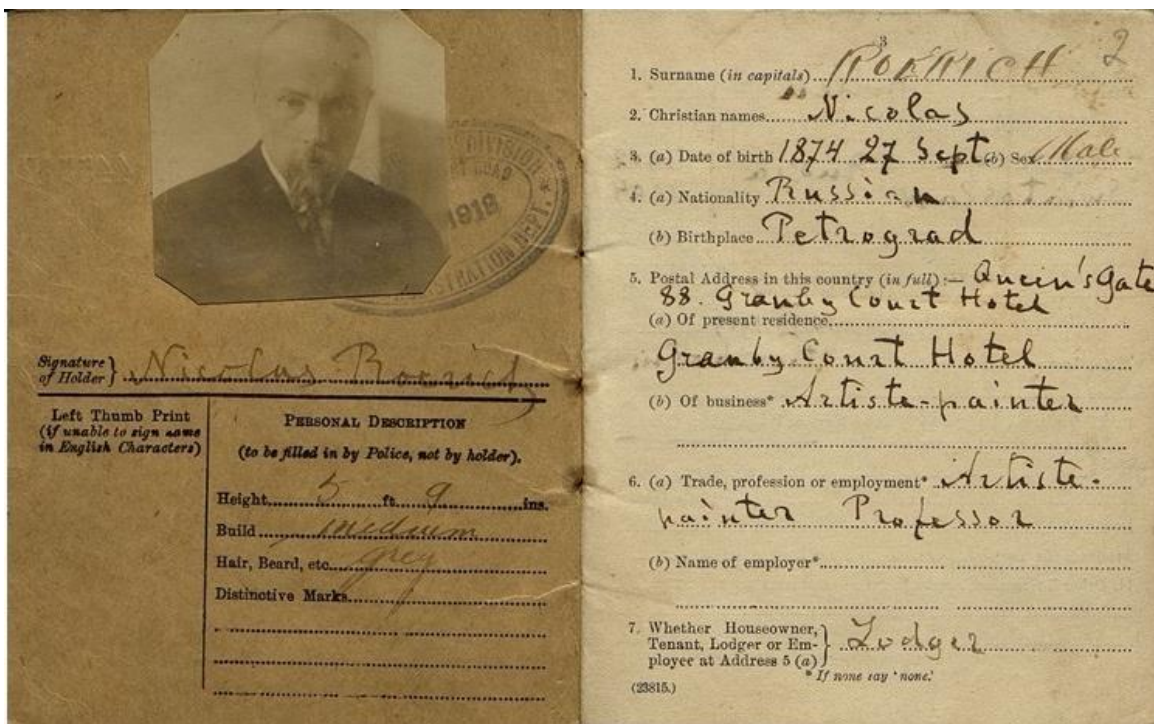 DIVISION
ROAD
1919
REGISTRATION DEPT.
Signature
of Holder } Nicolas Roerich
Left Thumb Print
(if unable to sign name
in English Characters)
PERSONAL DESCRIPTION
(to be filled in by Police, not by holder).
Height 5 ft 9 ins.
Build medium
Hair, Beard, etc. grey
Distinctive Marks
3
2
1. Surname (in capitals) ROERICH
2. Christian names Nicolas
3. (a) Date of birth 1874 27 Sept (b) Sex Male
4. (a) Nationality Russian
(b) Birthplace Petrograd
5. Postal Address in this country (in full):— Queen's Gate
88. Granby Court Hotel
(a) Of present residence
Granby Court Hotel
(b) Of business* Artiste-painter
6. (a) Trade, profession or employment* Artiste-
painter Professor
(b) Name of employer*
7. Whether Houseowner,
Tenant, Lodger or Em-
ployee at Address 5 (a) } Lodger
* If none say 'none.'
(23815.)